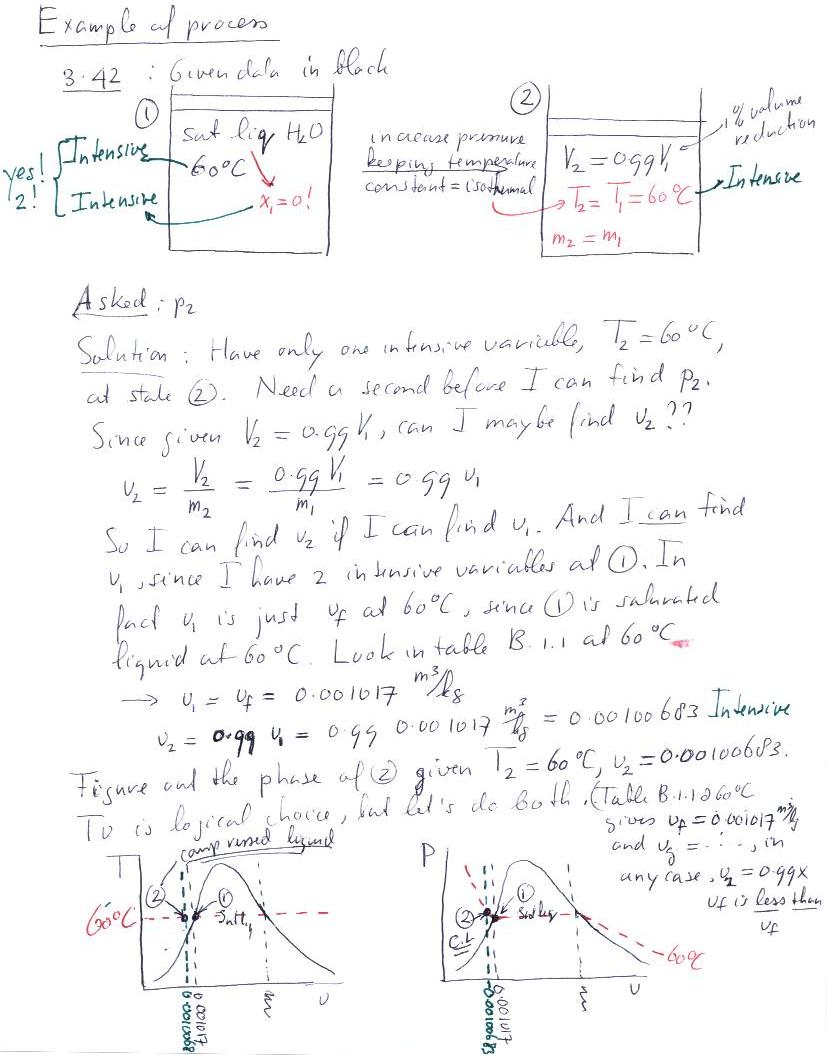 Example of process
3.42 : Given data in black
①
sat liq H2O
60°C
x1 = 0!
yes! 2!
Intensive
Intensive
increase pressure
keeping temperature
constant = isothermal
②
V2 = 0.99 V1
T2 = T1 = 60°C
m2 = m1
1% volume
reduction
Intensive
Asked : p2
Solution : Have only one intensive variable, T2 = 60°C,
at state ②. Need a second before I can find p2.
Since given V2 = 0.99 V1, can I maybe find v2 ??
v2 = V2/m2 = 0.99 V1/m1 = 0.99 v1
So I can find v2 if I can find v1. And I can find
v1, since I have 2 intensive variables at ①. In
fact v1 is just vf at 60°C, since ① is saturated
liquid at 60°C. Look in table B.1.1 at 60°C
→ v1 = vf = 0.001017 m³/kg
v2 = 0.99 v1 = 0.99 0.001017 m³/kg = 0.00100683 Intensive
Figure out the phase of ② given T2 = 60°C, v2 = 0.00100683.
Tv is logical choice, but let's do both. (Table B.1.1 @ 60°C
gives vf = 0.001017 m³/kg
and vg = ...., in
any case, v2 = 0.99 x
vf is less than
vf
compressed liquid
T
②
①
Satliq
60°C
v
0.001017
0.0010068
P
②
①
Satliq
C.L
60°C
v
0.001017
0.00100683